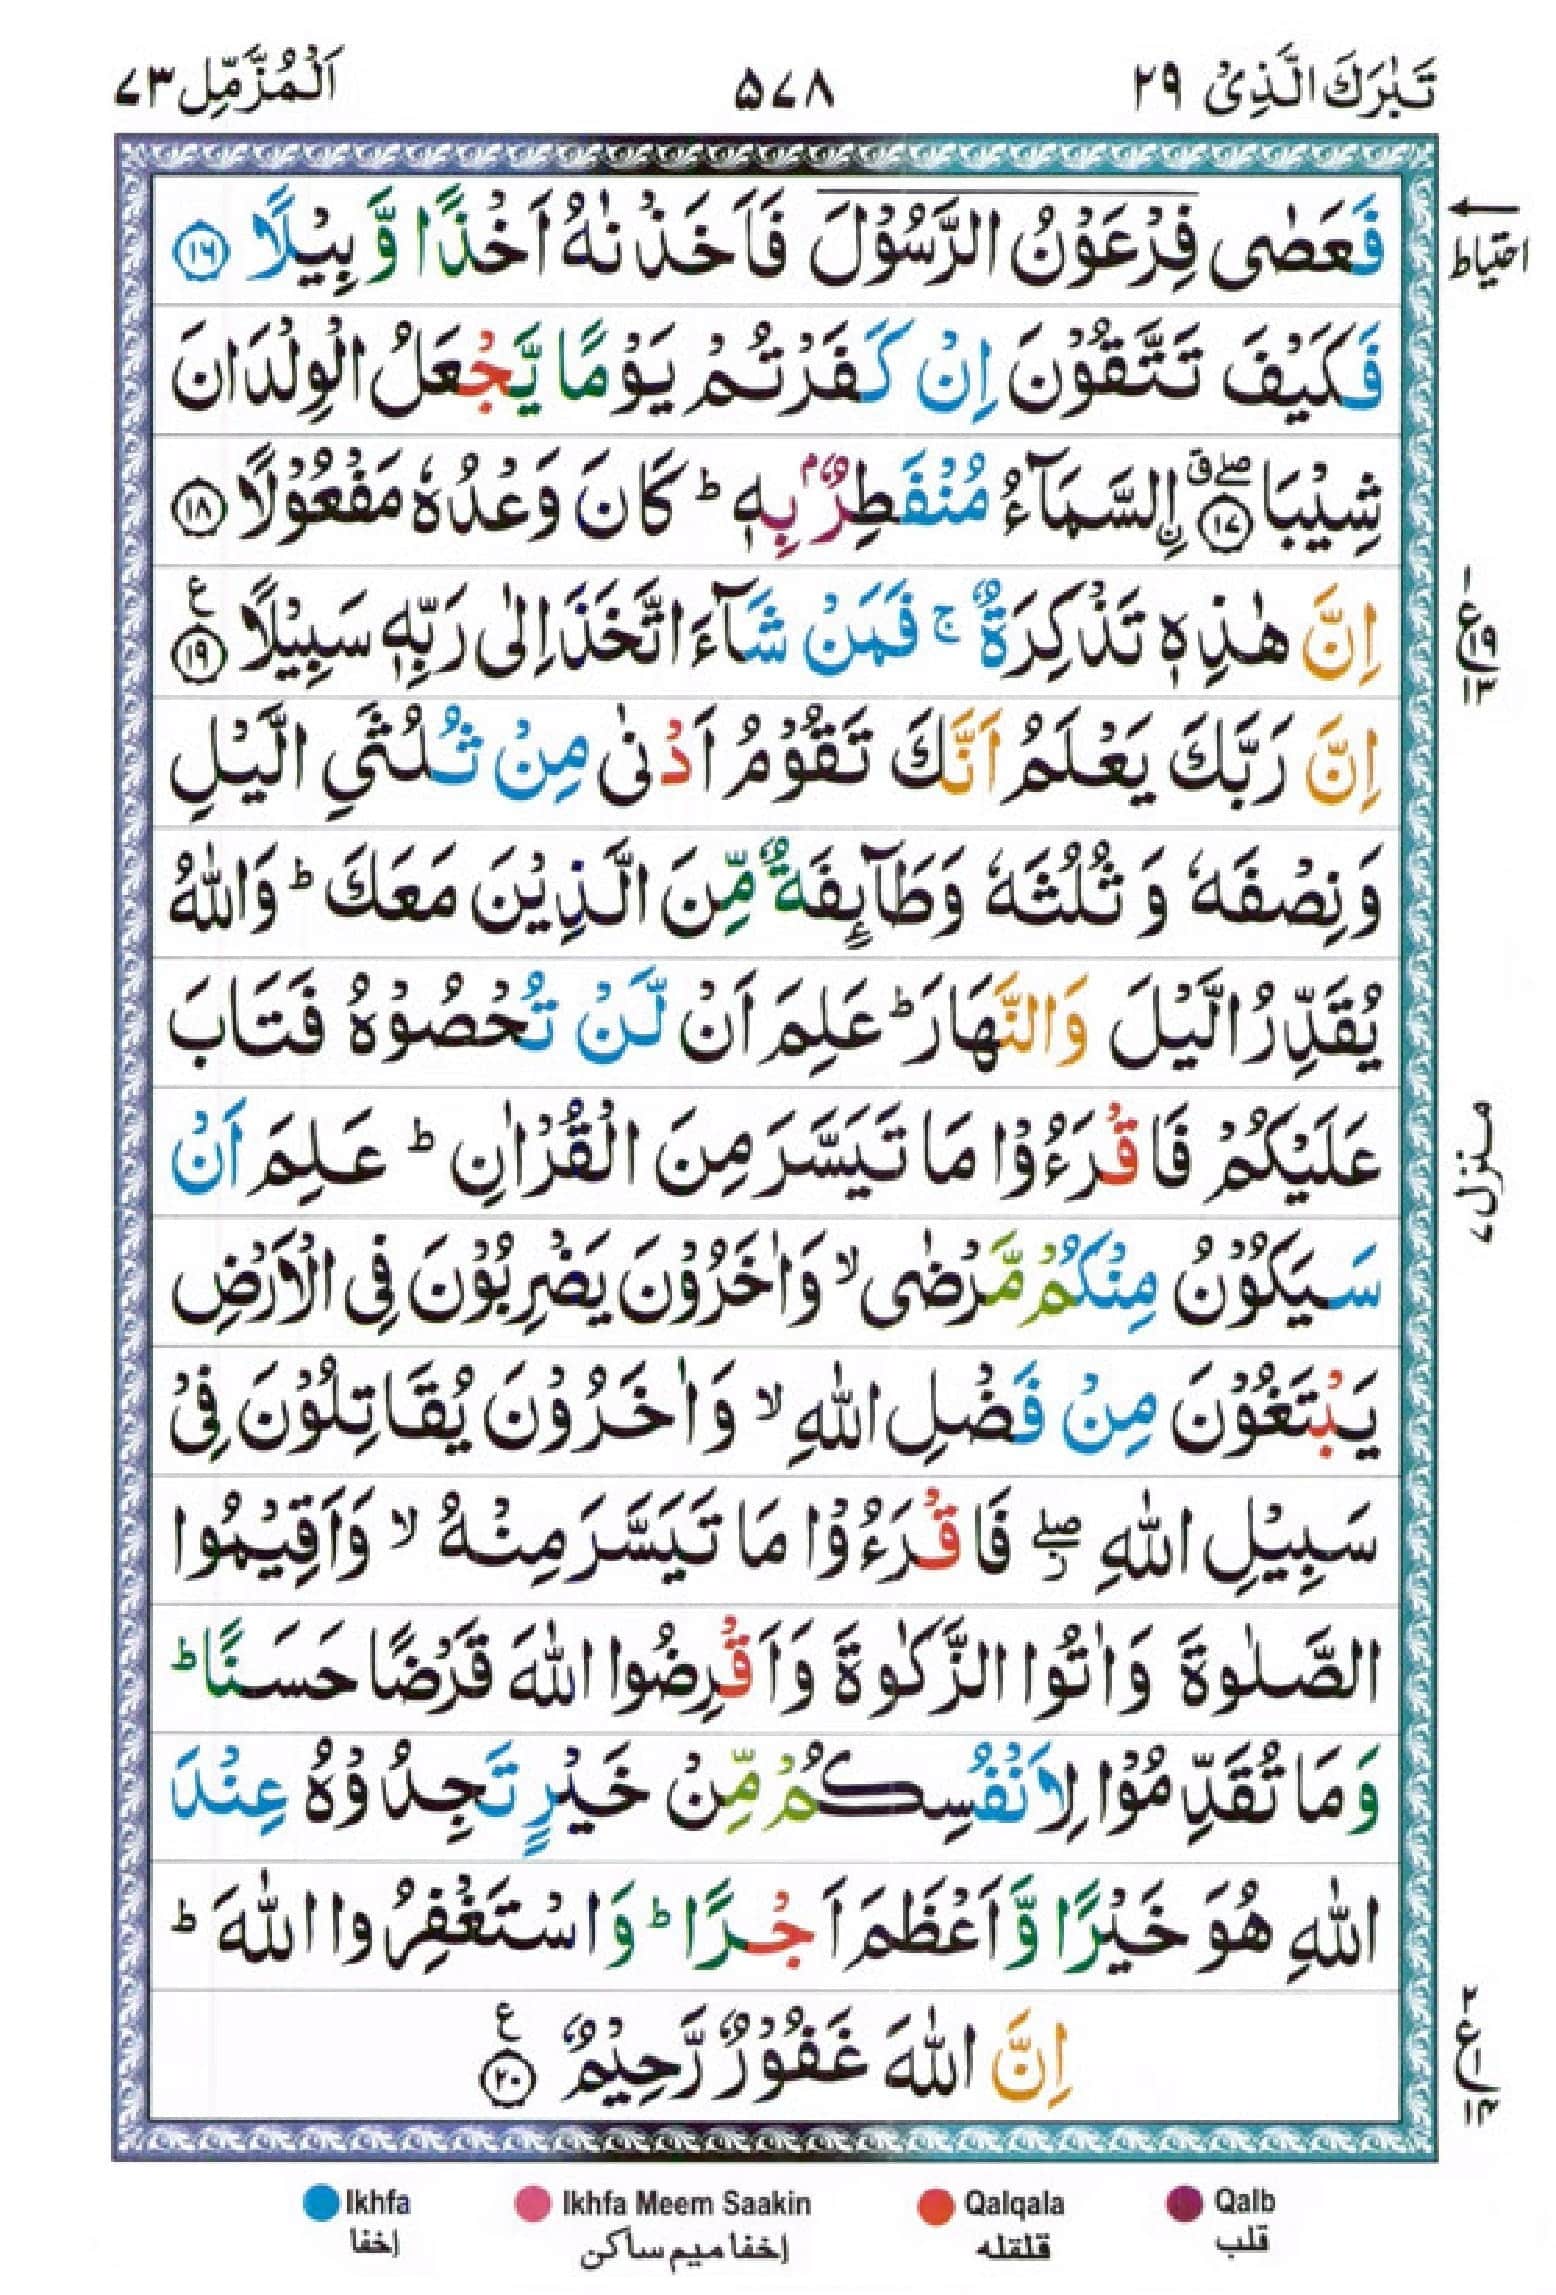 تَبٰرَكَ الَّذِیْ ۲۹
۵۷۸
اَلْمُزَّمِّل ۷۳
فَعَصٰی فِرْعَوْنُ الرَّسُوْلَ فَاَخَذْنٰهُ اَخْذًا وَّبِیْلًا ۱۶
احتیاط
فَكَیْفَ تَتَّقُوْنَ اِنْ كَفَرْتُمْ یَوْمًا یَّجْعَلُ الْوِلْدَانَ
شِیْبَا ۱۷ ۣالسَّمَآءُ مُنْفَطِرٌۢ بِهٖ ؕ كَانَ وَعْدُهٗ مَفْعُوْلًا ۱۸
اِنَّ هٰذِهٖ تَذْكِرَةٌ ۚ فَمَنْ شَآءَ اتَّخَذَ اِلٰی رَبِّهٖ سَبِیْلًا ۱۹ ع
۱ ع ۱۹ ۱۳
اِنَّ رَبَّكَ یَعْلَمُ اَنَّكَ تَقُوْمُ اَدْنٰی مِنْ ثُلُثَیِ الَّیْلِ
وَنِصْفَهٗ وَثُلُثَهٗ وَطَآىِٕفَةٌ مِّنَ الَّذِیْنَ مَعَكَ ؕ وَاللّٰهُ
یُقَدِّرُ الَّیْلَ وَالنَّهَارَ ؕ عَلِمَ اَنْ لَّنْ تُحْصُوْهُ فَتَابَ
عَلَیْكُمْ فَاقْرَءُوْا مَا تَیَسَّرَ مِنَ الْقُرْاٰنِ ؕ عَلِمَ اَنْ
منزل ۷
سَیَكُوْنُ مِنْكُمْ مَّرْضٰی ۙ وَاٰخَرُوْنَ یَضْرِبُوْنَ فِی الْاَرْضِ
یَبْتَغُوْنَ مِنْ فَضْلِ اللّٰهِ ۙ وَاٰخَرُوْنَ یُقَاتِلُوْنَ فِیْ
سَبِیْلِ اللّٰهِ ۖ فَاقْرَءُوْا مَا تَیَسَّرَ مِنْهُ ۙ وَاَقِیْمُوا
الصَّلٰوةَ وَاٰتُوا الزَّكٰوةَ وَاَقْرِضُوا اللّٰهَ قَرْضًا حَسَنًا ؕ
وَمَا تُقَدِّمُوْا لِاَنْفُسِكُمْ مِّنْ خَیْرٍ تَجِدُوْهُ عِنْدَ
اللّٰهِ هُوَ خَیْرًا وَّاَعْظَمَ اَجْرًا ؕ وَاسْتَغْفِرُوا اللّٰهَ ؕ
اِنَّ اللّٰهَ غَفُوْرٌ رَّحِیْمٌ ۲۰ ع
۲ ع ۱ ۱۴
Ikhfa Ikhfa Meem Saakin Qalqala Qalb
إخفا إخفا ميم ساكن قلقله قلب